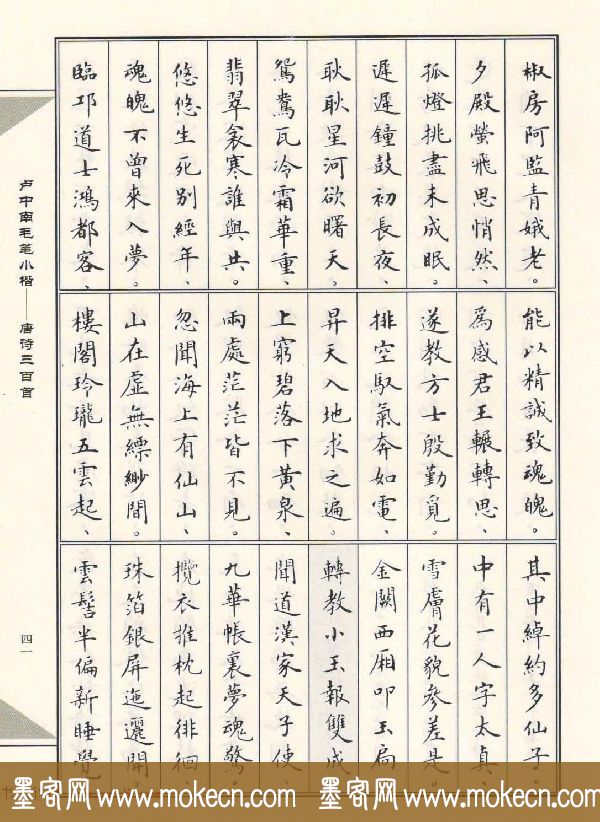 椒房阿監青娥老。
夕殿螢飛思悄然、
孤燈挑盡未成眠。
遲遲鐘鼓初長夜、
耿耿星河欲曙天。
鴛鴦瓦冷霜華重、
翡翠衾寒誰與共。
悠悠生死別經年、
魂魄不曾來入夢。
臨邛道士鴻都客、
能以精誠致魂魄。
為感君王輾轉思、
遂教方士殷勤覓。
排空馭氣奔如電、
昇天入地求之遍。
上窮碧落下黃泉、
兩處茫茫皆不見。
忽聞海上有仙山、
山在虛無縹緲間。
樓閣玲瓏五雲起、
其中綽約多仙子。
中有一人字太真、
雪膚花貌參差是。
金闕西廂叩玉扃
轉教小玉報雙成
聞道漢家天子使、
九華帳裏夢魂驚。
攬衣推枕起徘徊、
珠箔銀屏迤邐開。
雲髻半偏新睡覺
卢中南毛笔小楷——唐诗三百首
四一
墨客网 www.mokecn.com 墨客网 www.mokecn.com